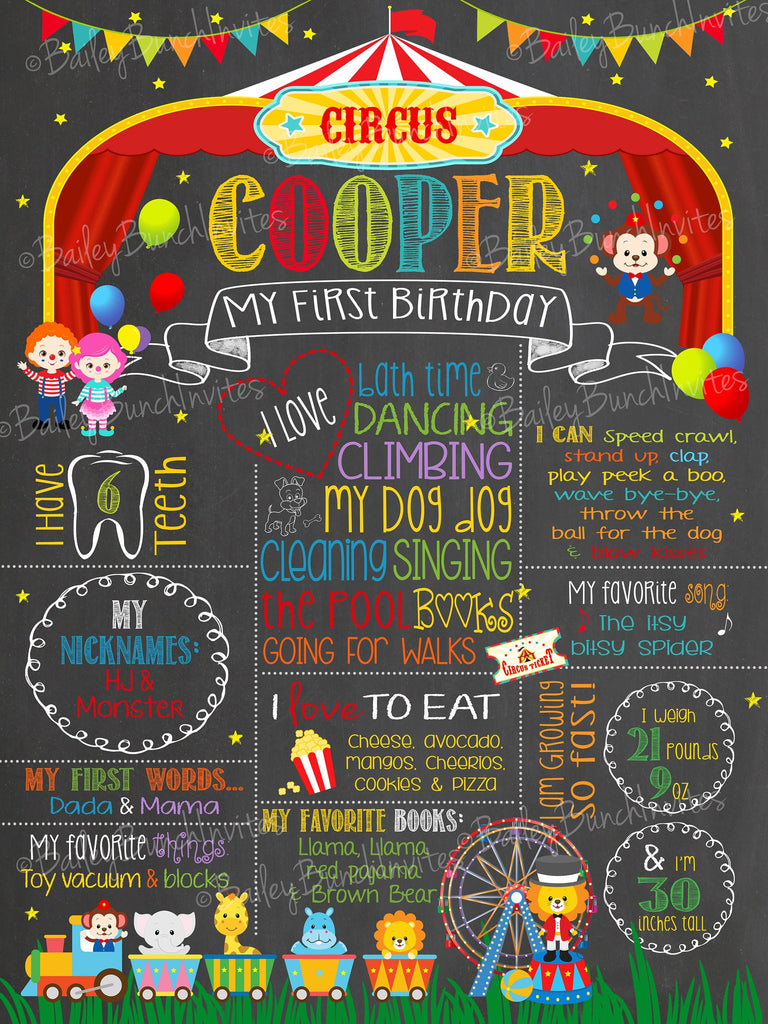 ©BaileyBunchInvites
©BaileyBunchInvites
CIRCUS
COOPER
©BaileyBunchInvites
©BaileyBunchInvites
My First Birthday
©BaileyBunchInvites
©BaileyBunchInvites
I LOVE
bath time
DANCING
CLIMBING
My Dog dog
cleaning SINGING
the POOL BOOKS
GOING FOR WALKS
I Have
6
Teeth
I CAN Speed crawl,
stand up, clap,
play peek a boo,
wave bye-bye,
throw the
ball for the dog
& blow kisses
MY
NICKNAMES:
HJ &
Monster
My favorite song:
The Itsy
bitsy Spider
CIRCUS TICKET
I love TO EAT
Cheese, avocado,
mangos, cheerios,
cookies & pizza
I AM GROWING
SO fast!
I weigh
21 pounds
9 oz
MY FIRST WORDS...
Dada & Mama
My favorite things:
Toy vacuum & blocks
©BaileyBunchInvites
MY FAVORITE BOOKS:
Llama, Llama,
red pajama
& Brown Bear
©BaileyBunchInvites
& I'm
30
inches tall